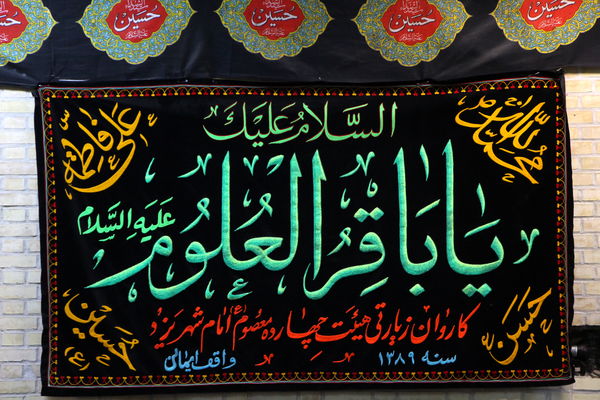 حسین
حسین
حسین
حسین
السلام علیک
محمد رسول الله
علی فاطمه
یا باقر العلوم
علیه السلام
حسن
حسین (ع)
کاروان زیارتی هیئت چهارده معصوم ع امام شهر یزد
سنه ۱۳۸۹
واقف ایمانی